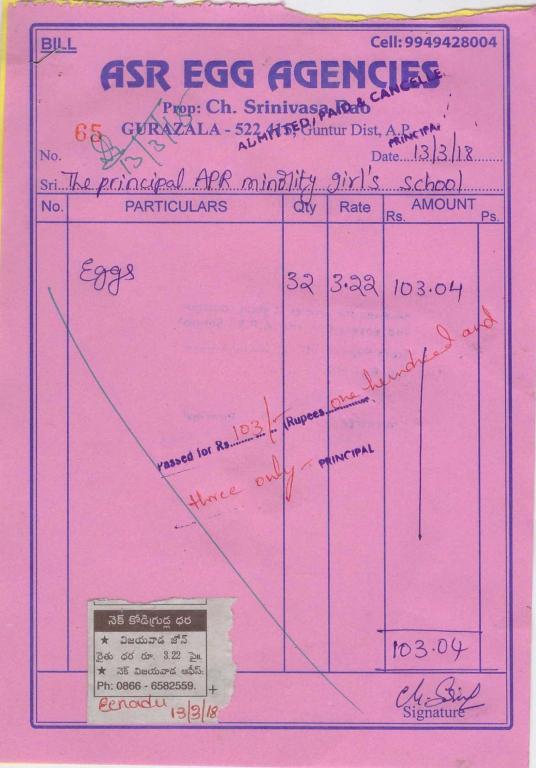 BILL
Cell: 9949428004
ASR EGG AGENCIES
Prop: Ch. Srinivasa Rao
GURAZALA - 522 415, Guntur Dist, A.P.
ADMITTED, PAID & CANCELLE
PRINCIPAL
65
13/3/18
No.
Date 13/3/18
Sri The principal APR minolity girl's school
No. PARTICULARS Qty Rate AMOUNT
Rs. Ps.
Eggs 32 3.22 103.04
Passed for Rs. 103/- (Rupees one hundred and
three only - PRINCIPAL
103.04
నెక్ కోడిగ్రుడ్ల ధర
★ విజయవాడ జోన్
రైతు ధర రూ. 3.22 పై॥
★ నెక్ విజయవాడ ఆఫీస్:
Ph: 0866 - 6582559.
Eenadu
13/3/18
Signature